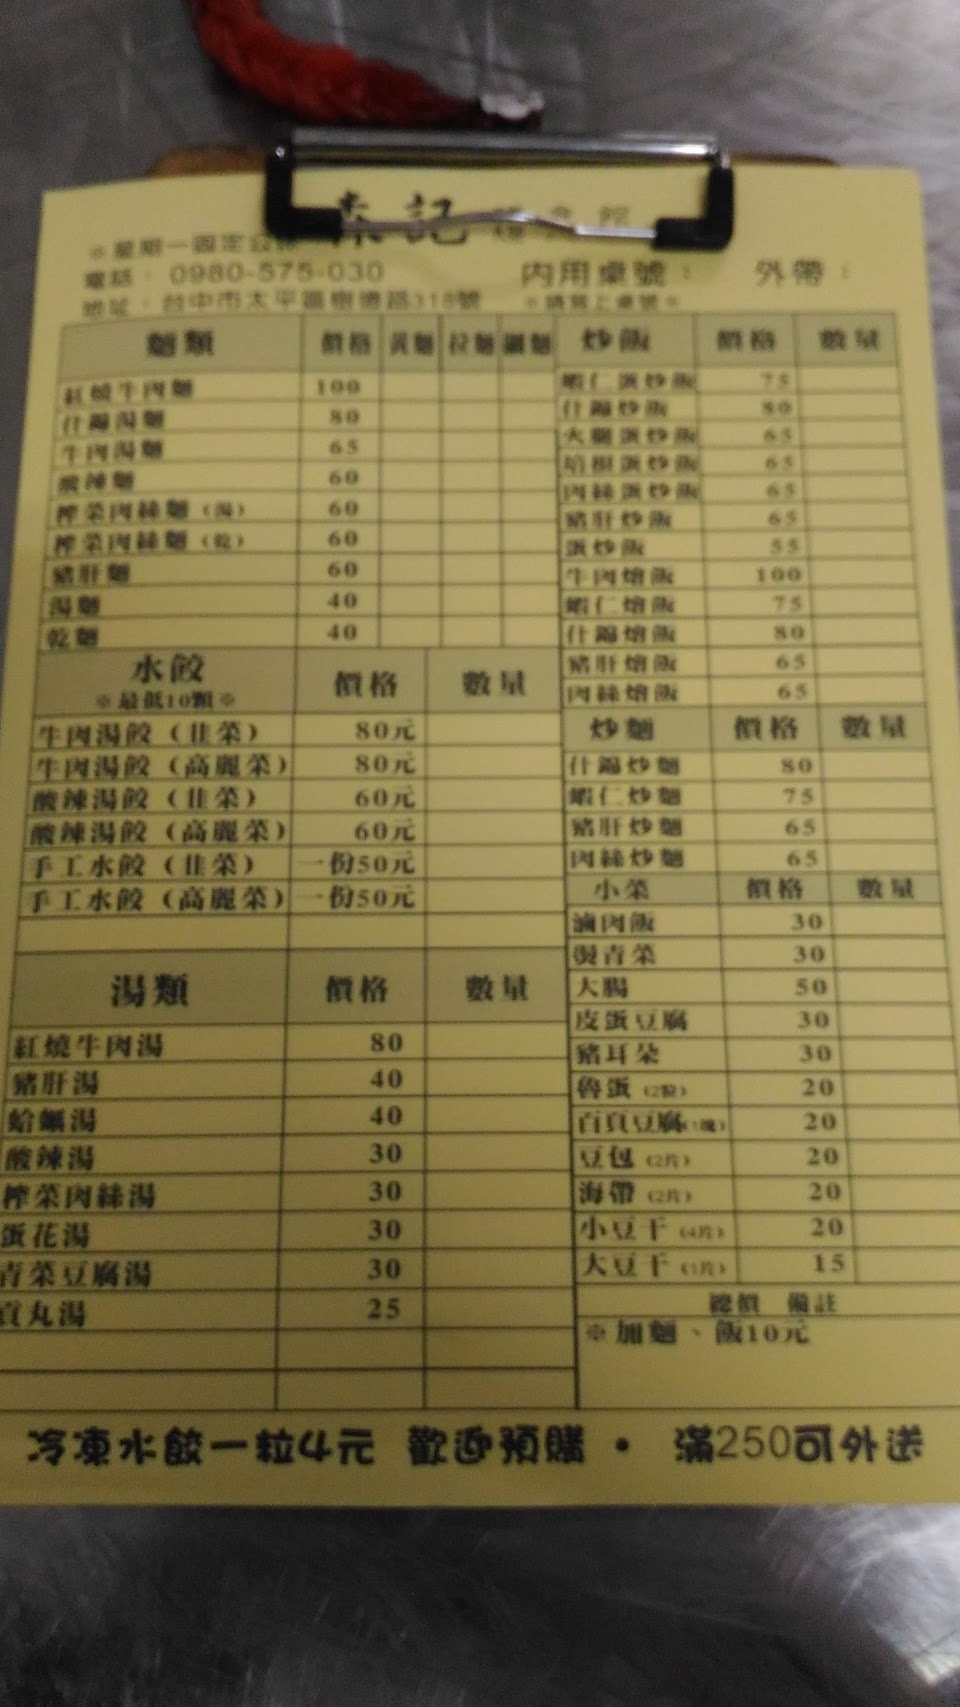 記
※星期一固定公休
電話：0980-575-030 內用桌號： 外帶：
地址：台中市太平區樹德路318號 ※請寫上桌號※
麵類 價格 黃麵 拉麵 細麵
紅燒牛肉麵 100
什錦湯麵 80
牛肉湯麵 65
酸辣麵 60
榨菜肉絲麵（湯） 60
榨菜肉絲麵（乾） 60
豬肝麵 60
湯麵 40
乾麵 40
水餃 價格 數量
※最低10顆※
牛肉湯餃（韭菜） 80元
牛肉湯餃（高麗菜） 80元
酸辣湯餃（韭菜） 60元
酸辣湯餃（高麗菜） 60元
手工水餃（韭菜） 一份50元
手工水餃（高麗菜） 一份50元
湯類 價格 數量
紅燒牛肉湯 80
豬肝湯 40
蛤蠣湯 40
酸辣湯 30
榨菜肉絲湯 30
蛋花湯 30
青菜豆腐湯 30
貢丸湯 25
炒飯 價格 數量
蝦仁蛋炒飯 75
什錦炒飯 80
火腿蛋炒飯 65
培根蛋炒飯 65
肉絲蛋炒飯 65
豬肝炒飯 65
蛋炒飯 55
牛肉燴飯 100
蝦仁燴飯 75
什錦燴飯 80
豬肝燴飯 65
肉絲燴飯 65
炒麵 價格 數量
什錦炒麵 80
蝦仁炒麵 75
豬肝炒麵 65
肉絲炒麵 65
小菜 價格 數量
滷肉飯 30
燙青菜 30
大腸 50
皮蛋豆腐 30
豬耳朵 30
魯蛋（2顆） 20
百頁豆腐（1塊） 20
豆包（2片） 20
海帶（2片） 20
小豆干（4片） 20
大豆干（1片） 15
總價 備註
※加麵、飯10元
冷凍水餃一粒4元 歡迎預購 · 滿250可外送